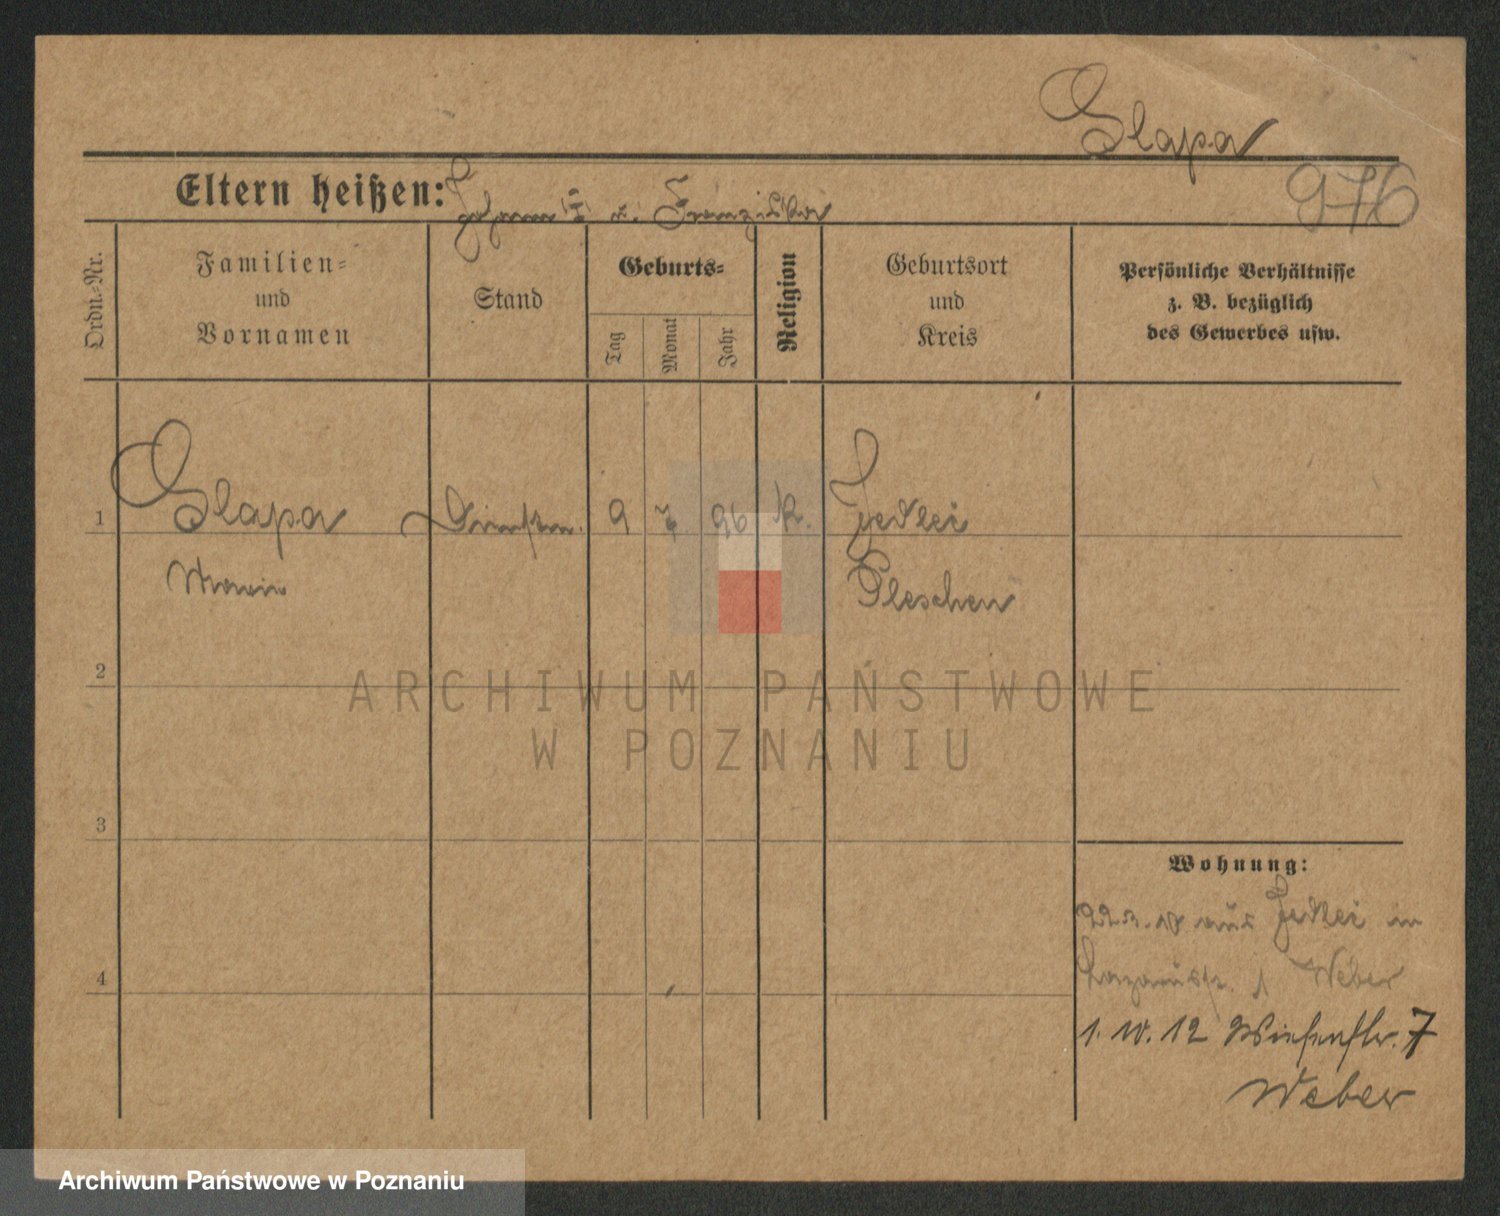 Glapa
Eltern heißen: Johann u. Franziska
976
Ordn.-Nr.
Familien-
und
Vornamen
Stand
Geburts-
Tag
Monat
Jahr
Religion
Geburtsort
und
Kreis
Persönliche Verhältnisse
z. B. bezüglich
des Gewerbes usw.
1 Glapa 9 7 96 k. Jedlec
Maria Pleschen
2
ARCHIWUM PAŃSTWOWE
W POZNANIU
3
Wohnung:
aus Jedlec in
4 Lazarusstr. 1 Weber
1. 10. 12 Wiesenstr. 7
Weber
Archiwum Państwowe w Poznaniu